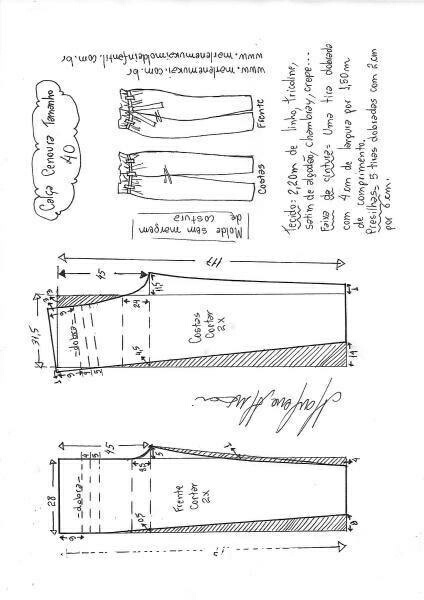 Calça Cenoura Tamanho
40
www.marlenemukai.com.br
www.marlenemukaimoldeinfantil.com.br
Frente
Costas
Molde sem margem
de costura
Tecido: 2,20m de linho, tricoline,
setim de algodão, chambray, crepe...
Faixa da cintura: Uma tira dobrada
com 4 cm de largura por 1,50m
de comprimento.
Presilhas: 5 tiras dobradas com 2 cm
por 6 cm.
117
45
31,5
11,5
24
6
=dobra=
4
5
45
Costas
Cortar
2X
1
19
45
28
5
85
6
=dobra=
4
5
65
Frente
Cortar
2X
1
4
8